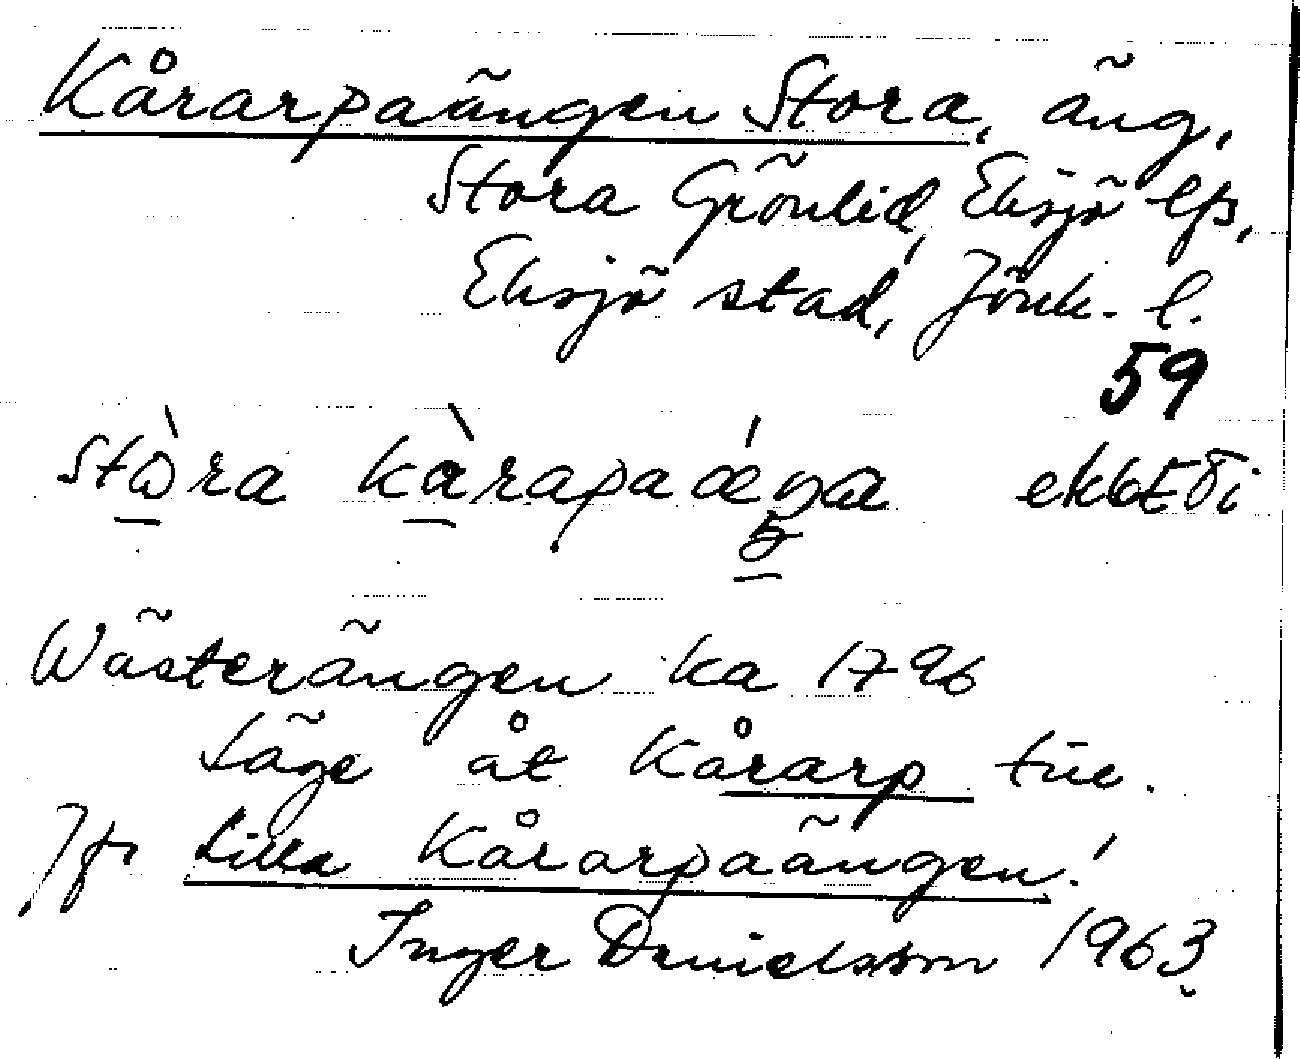 Kårarpaängen Stora, äng,
Stora Grönlid, Eksjö lfs,
Eksjö stad, Jönk. l.
59
stòra kàrapaǽŋa
Wästerängen ka 1796
Läge åt Kårarp
Jfr Lilla Kårarpaängen!
Inger Danielsson 1963